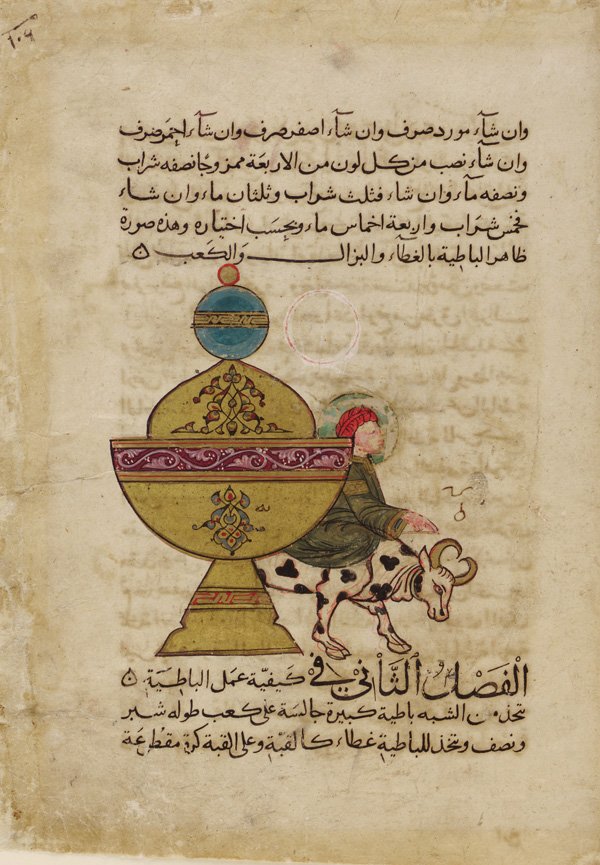 ١٠٩
وان شآء مورد صرف وان شآء اصفر صرف وان شآء احمر صرف
وان شآء نصب من كل لون من الاربعة ممزوجا نصفه شراب
ونصفه مآء وان شاء فثلث شراب وثلثان ماء وان شاء
فخمس شراب واربعة اخماس ماء وبحسب اختياره وهذه صورة
ظاهر الباطية بالغطاء والبزال والكعب
الفصل الثاني في كيفية عمل الباطية
تتخذ من الشبه باطية كبيرة جالسة على كعب طوله شبر
ونصف ويتخذ للباطية غطاء كالقبة وعلى القبة كرة مقطوعة